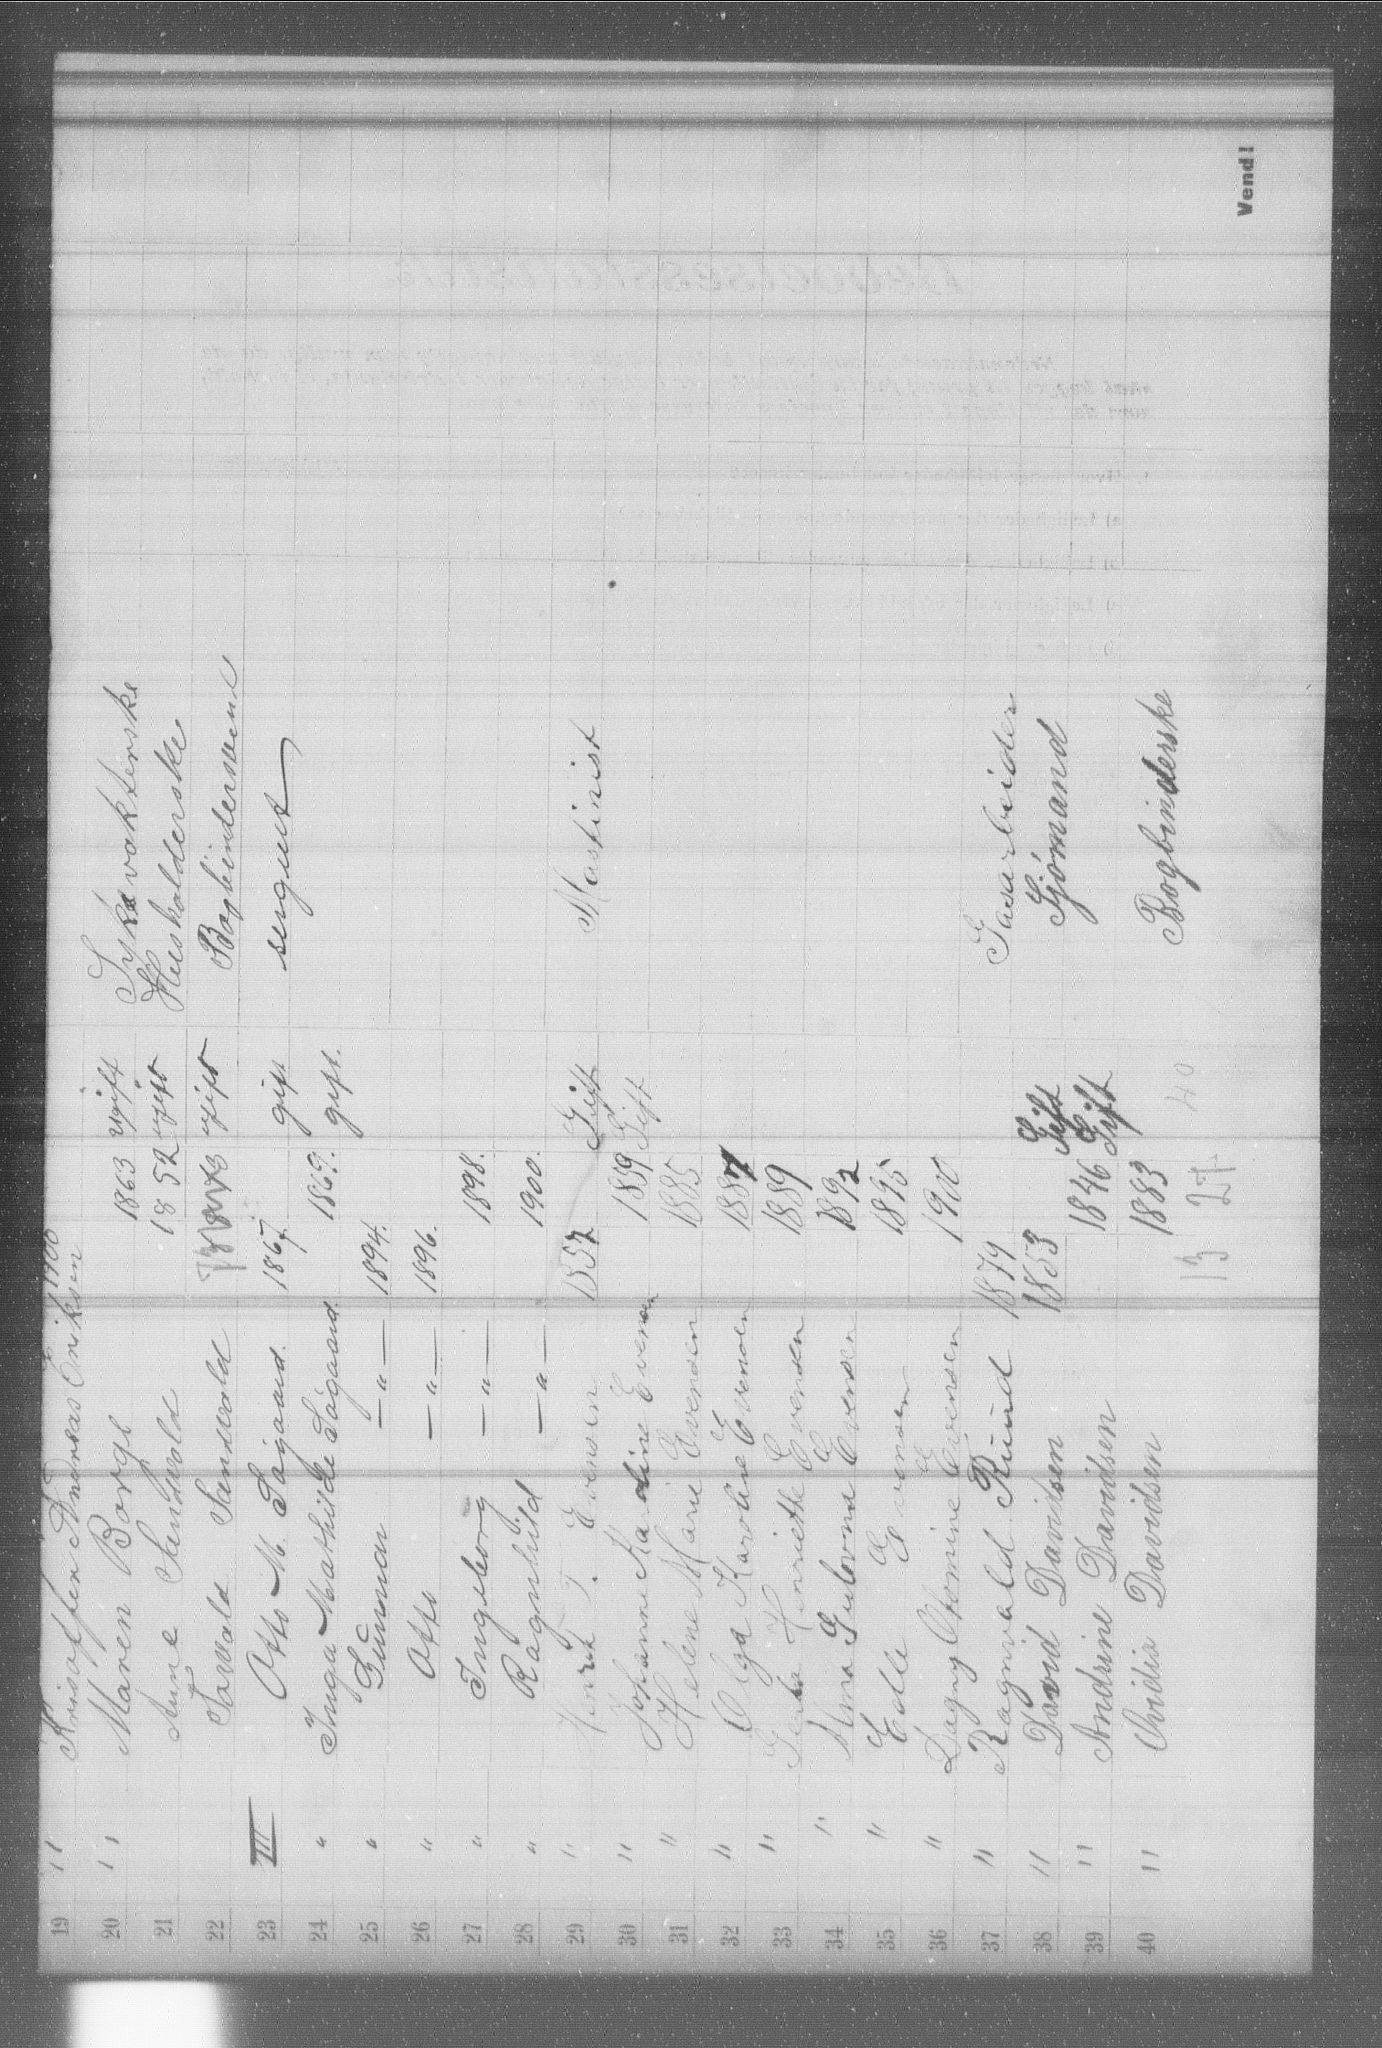 19 " Kristoffer Andreas Eriksen 1900
20 " Maren Borge 1863 ugift Sykevakterske
21 Anne Sandvold 1852 ugift Husholderske
22 Torvald Sandvold ugift Bogbindersvend
23 III Otto M. Sögaard. 1867. gift sergeut
24 " Inga Mathilde Sögaard. 1869. gift.
25 " Gunnar — " — 1894.
26 " Otto — " — 1896.
27 " Ingeborg — " — 1898.
28 " Ragnhild — " — 1900.
29 " Henrik T. Evensen 1857 Gift Maskinist
30 " Johanne Karoline Evensen 1859 Gift
31 " Helene Marie Evensen 1885
32 " Olga Karoline Evensen 1887
33 " Henriette Evensen 1889
34 " Alma Evensen 1892
35 " Edle Evensen 1895
36 " Dagny Evensen 1900
37 " Ragnvald Ruud 1879 Gasarbeider
38 " David Davidsen 1853 Gift Sjömand
39 " Andrine Davidsen 1846 Gift
40 " Ovidia Davidsen 1883 Bogbinderske
13 27 40
Vend!